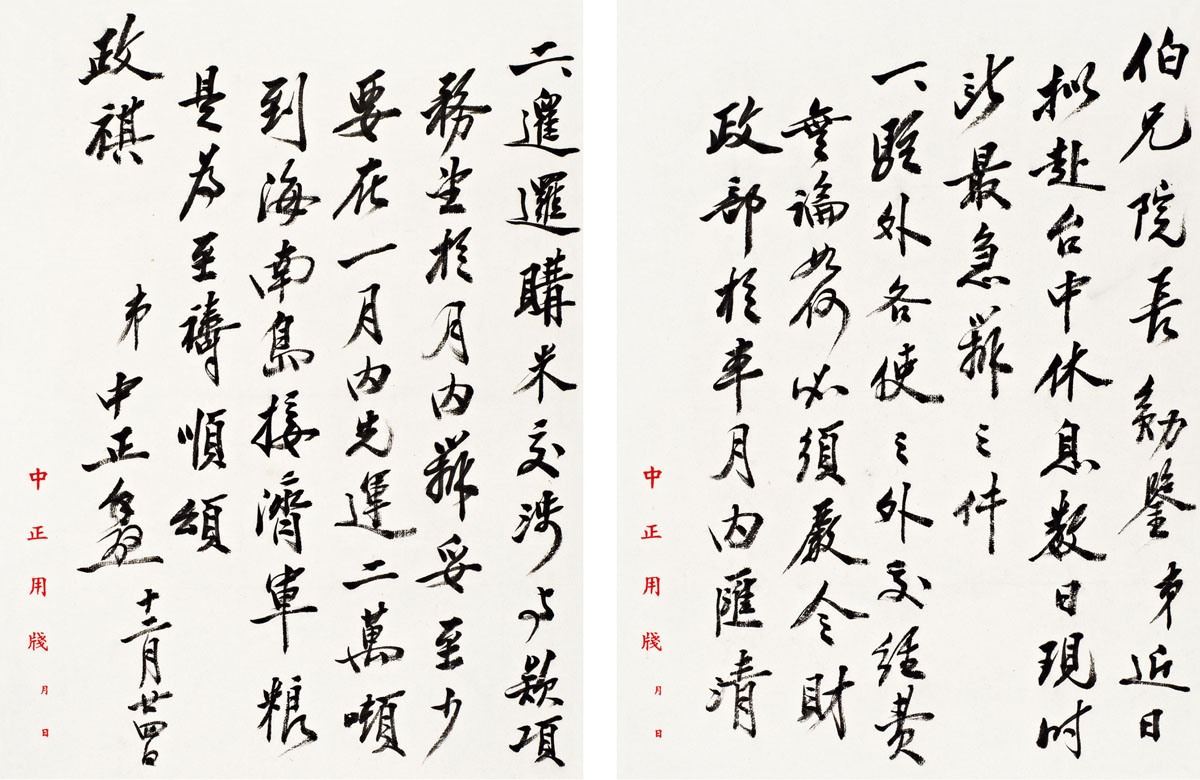 伯兄院長勛鑒弟近日
擬赴台中休息数日現时
最急辦之件
一、駐外各使之外交經費
無論如何必須嚴令財
政部於本月内匯清
中正用牋 月 日
二、暹邏購米交涉与款項
務望於月内辦妥至少
要在一月内先運二萬噸
到海南島接濟軍粮
是為至禱順頌
政祺
弟中正 十二月廿四日
中正用牋 月 日